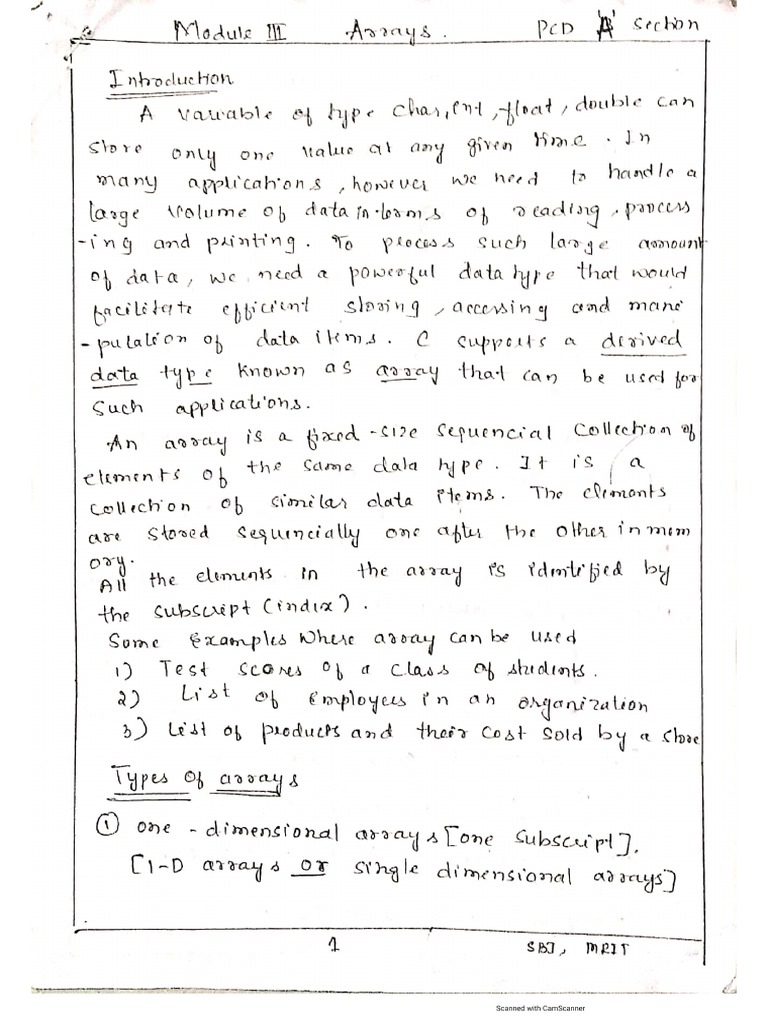 Module III Arrays. PCD 'A' section
Introduction
A variable of type char, int, float, double can
store only one value at any given time. In
many applications, however we need to handle a
large volume of data in terms of reading, process
-ing and printing. To process such large amount
of data, we need a powerful data type that would
facilitate efficient storing, accessing and mani
-pulation of data items. C supports a derived
data type known as array that can be used for
such applications.
An array is a fixed-size sequencial collection of
elements of the same data type. It is a
collection of similar data items. The elements
are stored sequencially one after the other in mem
ory.
All the elements in the array is identified by
the subscript (index).
Some examples where array can be used
1) Test scores of a class of students.
2) List of employees in an organization
3) List of products and their cost sold by a store
Types of arrays
① one-dimensional arrays [one subscript].
[1-D arrays or single dimensional arrays]
1 SBJ, MRIT
Scanned with CamScanner